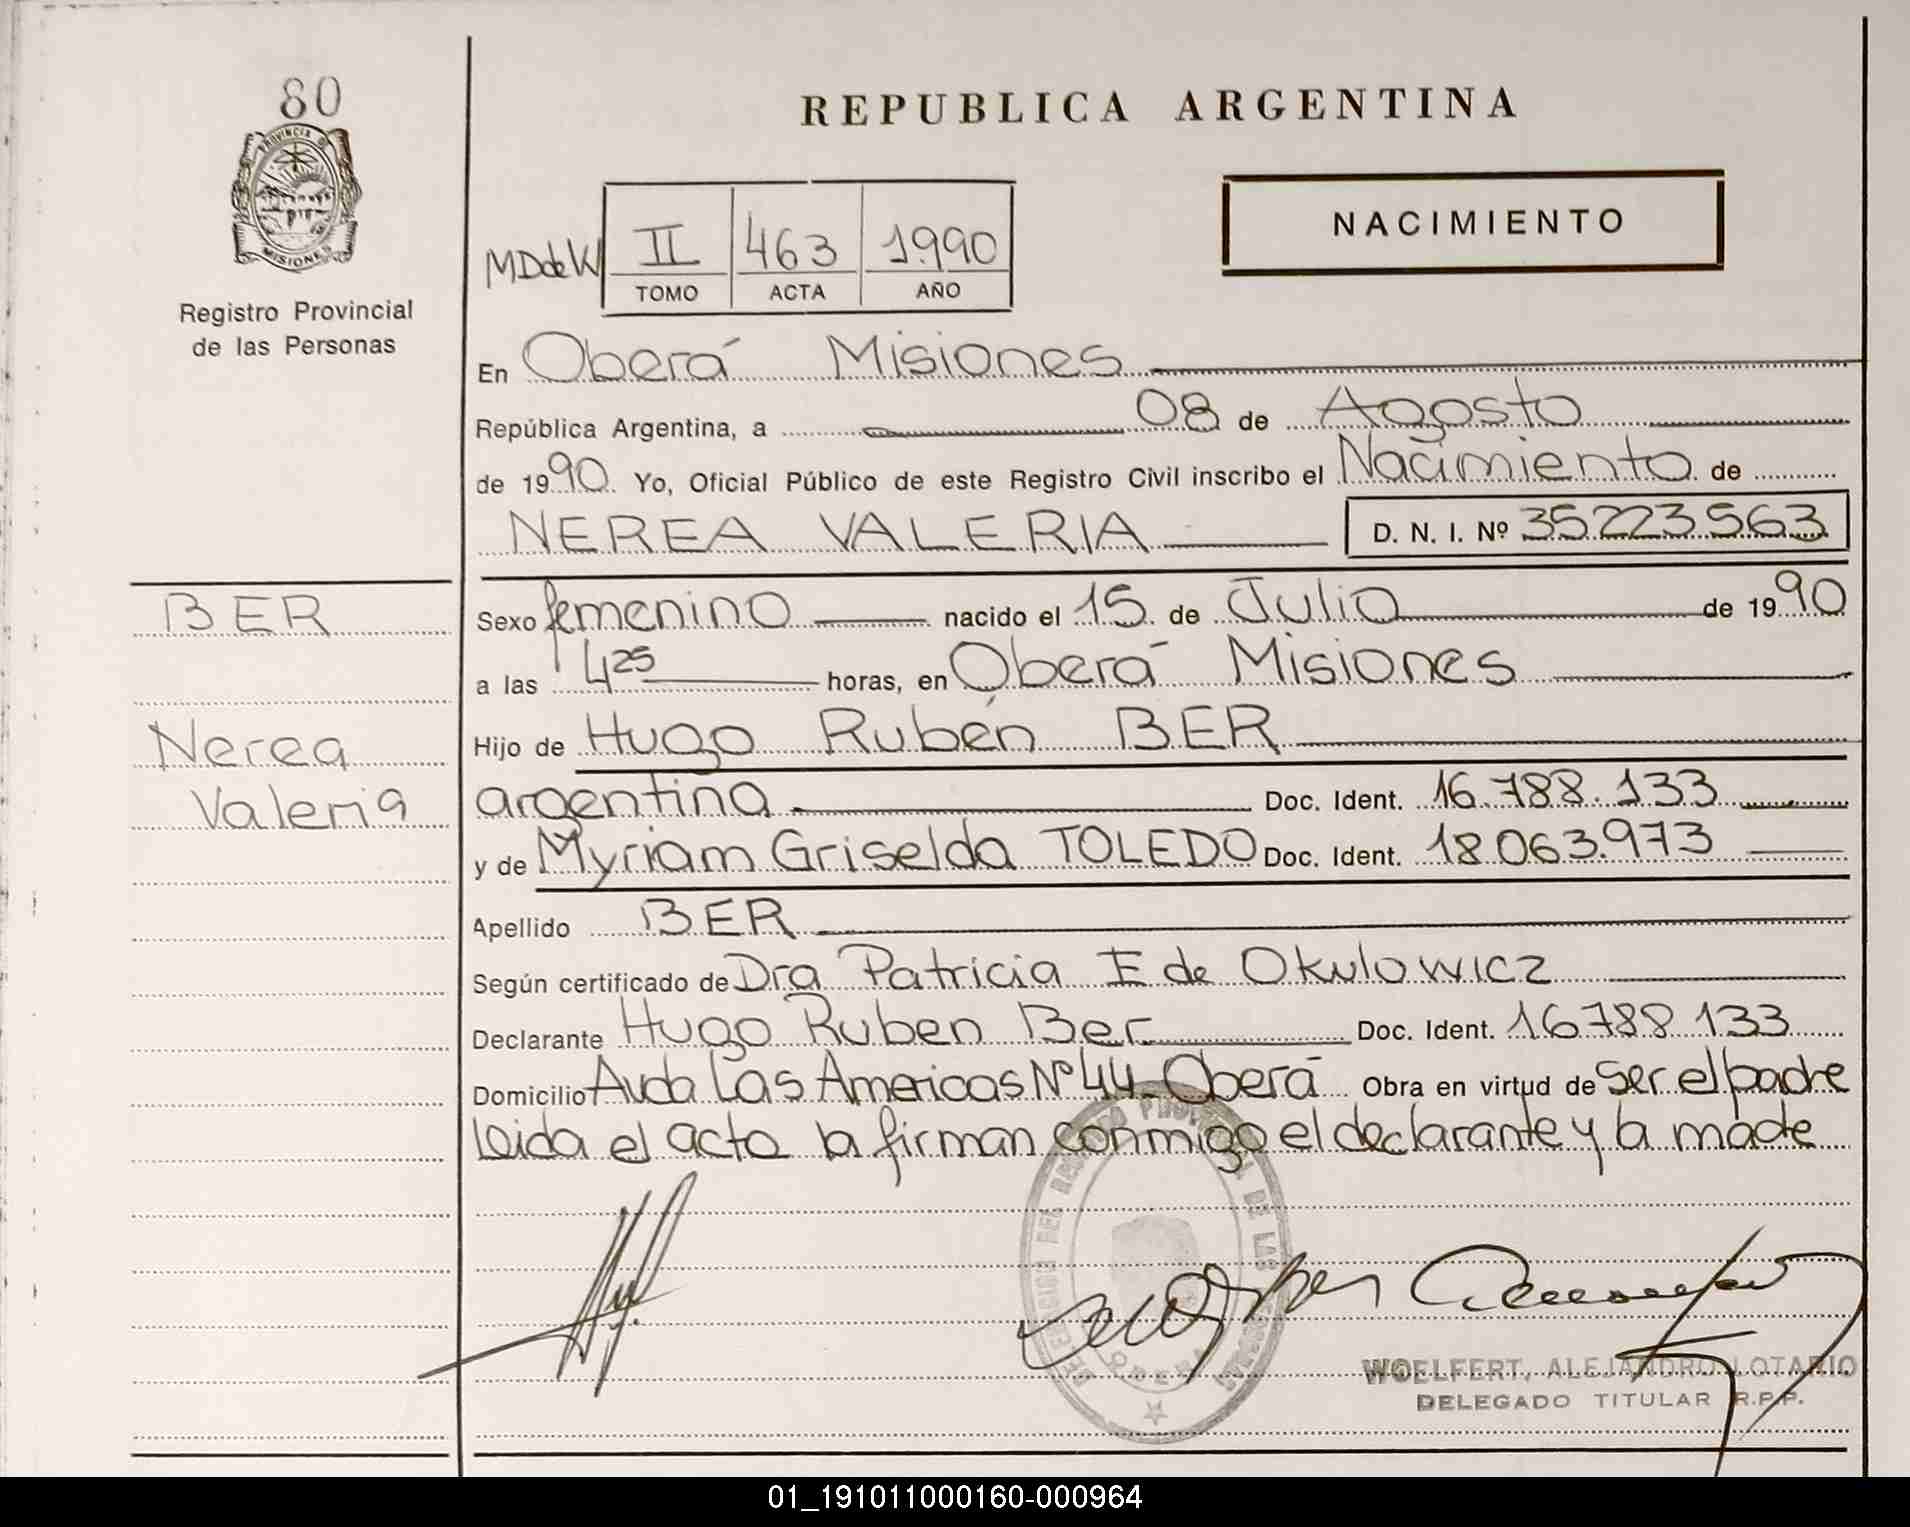 80
PROVINCIA DE
MISIONES
Registro Provincial
de las Personas
BER
Nerea
Valeria
REPUBLICA ARGENTINA
NACIMIENTO
MDdeW II 463 1.990
TOMO ACTA AÑO
En Oberá Misiones
República Argentina, a 08 de Agosto
de 1990. Yo, Oficial Público de este Registro Civil inscribo el Nacimiento de
NEREA VALERIA D. N. I. Nº 35.223.563
Sexo femenino nacido el 15 de Julio de 1990
a las 4 25 horas, en Oberá Misiones
Hijo de Hugo Rubén BER
argentina Doc. Ident. 16.788.133
y de Myriam Griselda TOLEDO Doc. Ident. 18.063.973
Apellido BER
Según certificado de Dra Patricia E de Okulowicz
Declarante Hugo Ruben Ber Doc. Ident. 16.788.133
Domicilio Avda Las Americas Nº 44 Oberá Obra en virtud de ser el padre
leida el acta la firman conmigo el declarante y la madre
DELEGACION DEL REGISTRO PROVINCIAL DE LAS PERSONAS
OBERA
WOELFERT, ALEJANDRO LOTARIO
DELEGADO TITULAR R.P.P.
01_191011000160-000964